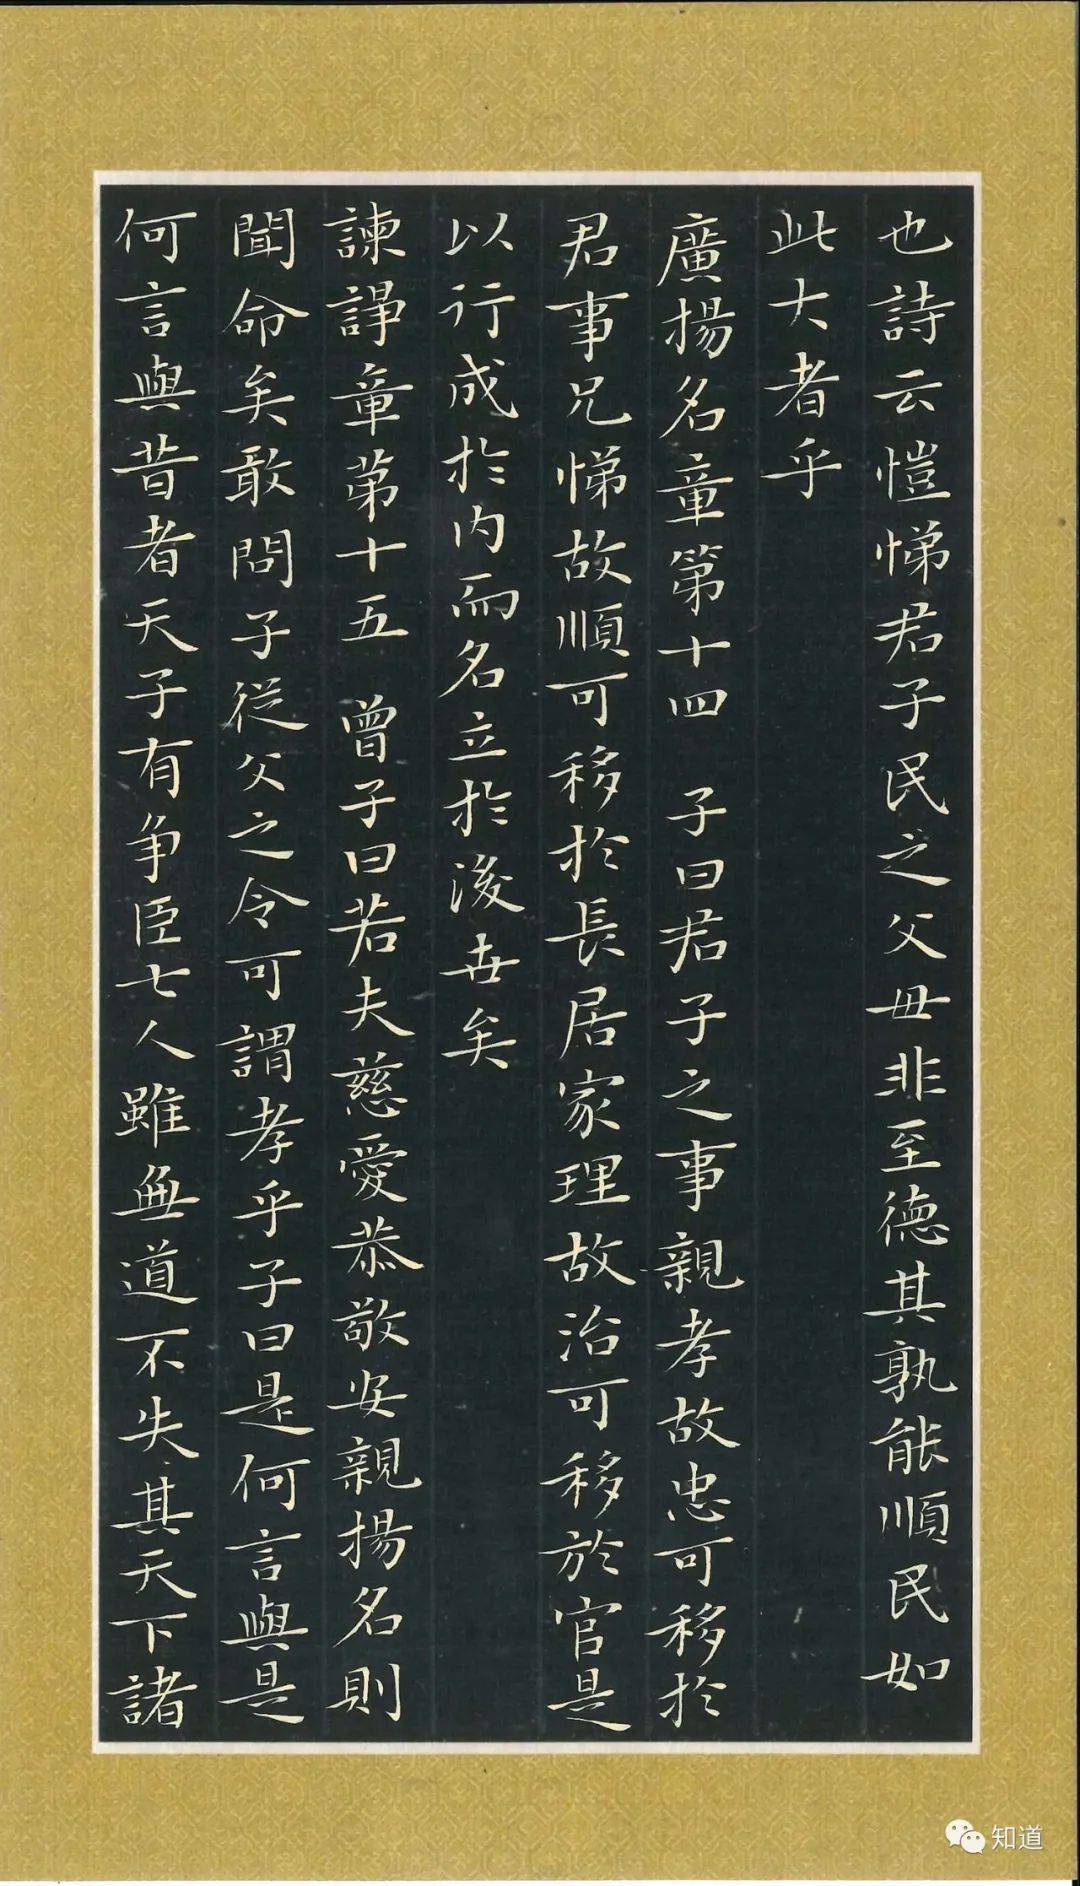 也詩云愷悌君子民之父母非至德其孰能順民如
此大者乎
廣揚名章第十四 子曰君子之事親孝故忠可移於
君事兄悌故順可移於長居家理故治可移於官是
以行成於內而名立於後世矣
諫諍章第十五 曾子曰若夫慈愛恭敬安親揚名則
聞命矣敢問子從父之令可謂孝乎子曰是何言與是
何言與昔者天子有争臣七人雖無道不失其天下諸
知道